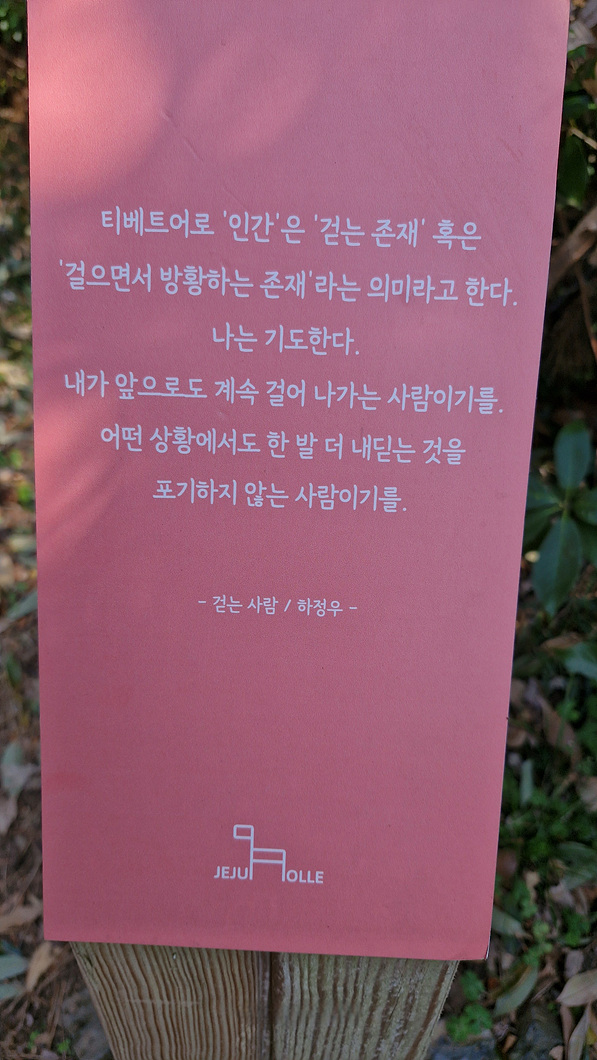 티베트어로 '인간'은 '걷는 존재' 혹은
'걸으면서 방황하는 존재'라는 의미라고 한다.
나는 기도한다.
내가 앞으로도 계속 걸어 나가는 사람이기를.
어떤 상황에서도 한 발 더 내딛는 것을
포기하지 않는 사람이기를.
- 걷는 사람 / 하정우 -
JEJU OLLE